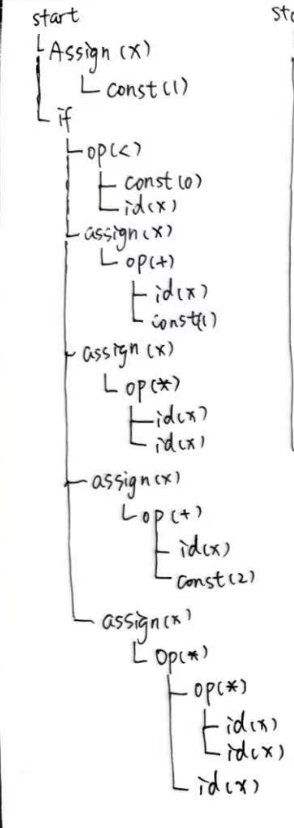 start
Assign (x)
const(1)
if
op(<)
const(0)
id(x)
assign(x)
op(+)
id(x)
const(1)
assign(x)
op(*)
id(x)
id(x)
assign(x)
op(+)
id(x)
const(2)
assign(x)
op(*)
op(*)
id(x)
id(x)
id(x)